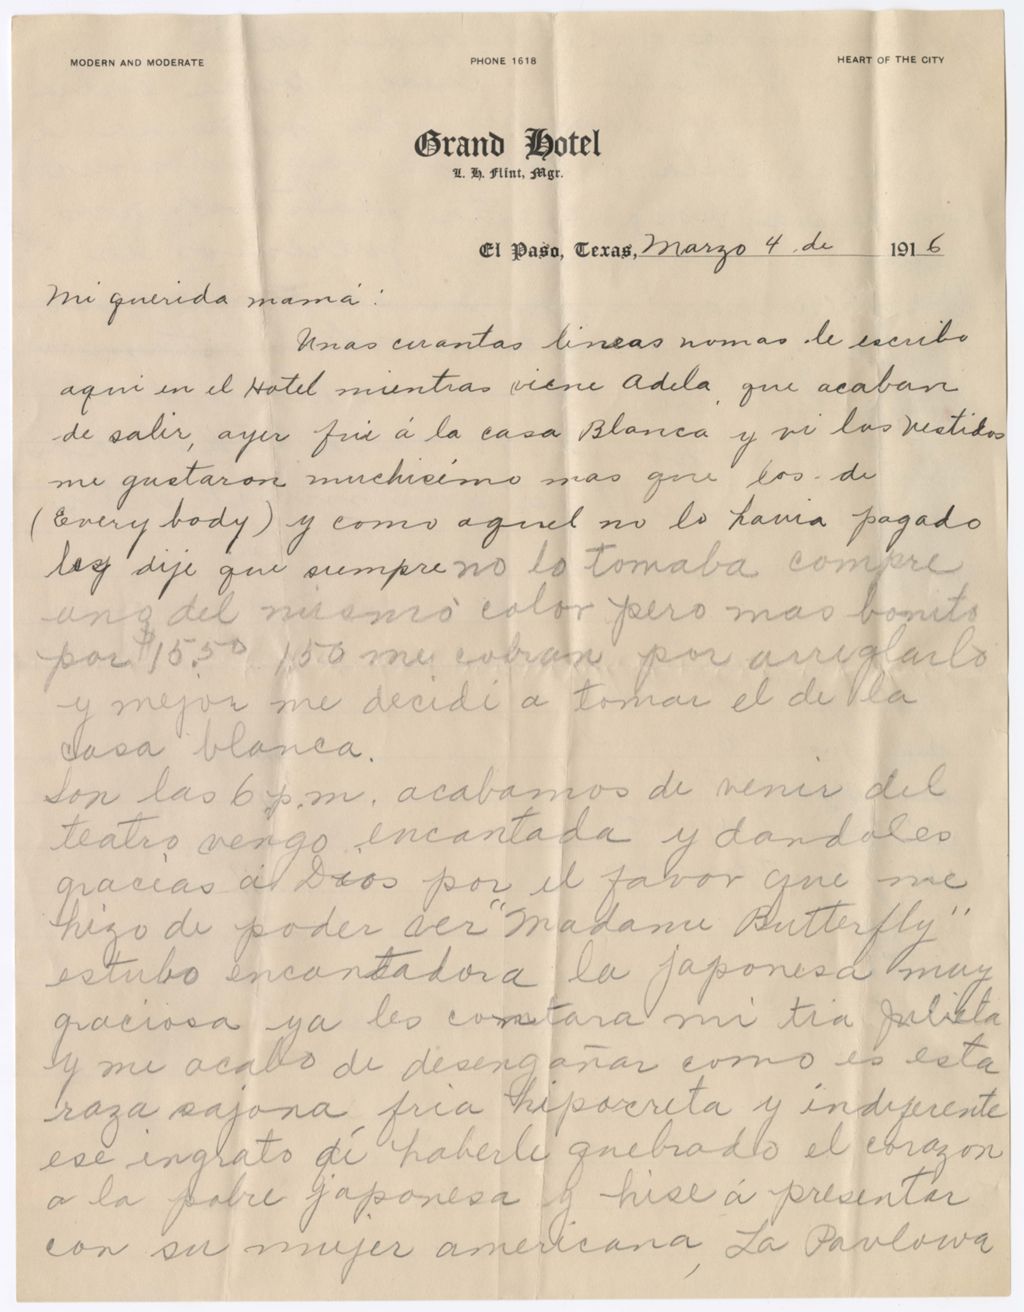 MODERN AND MODERATE PHONE 1618 HEART OF THE CITY
Grand Hotel
L. H. Flint, Mgr.
El Paso, Texas, Marzo 4 de 1916
Mi querida mamá:
Unas cuantas lineas nomas le escribo
aqui en el Hotel mientras viene Adela, que acaban
de salir, ayer fui á la casa Blanca y vi los vestidos
me gustaron muchisímo mas que los de
(Every body) y como aquel no lo havia pagado
les dije que siempre no lo tomaba compre
uno del mismo color pero mas bonito
por $15.50 1.50 me cobran por arreglarlo
y mejor me decidi a tomar el de la
casa blanca.
Son las 6 p.m. acabamos de venir del
teatro vengo encantada y dandoles
gracias á Dios por el favor que me
hizo de poder ver "Madame Butterfly"
estubo encantadora la japonesa muy
graciosa ya les contara mi tia Julieta
y me acabo de desengañar como es esta
raza sajona, fria hipocreta y indiferente
ese ingrato de haberle quebrado el corazon
a la pobre japonesa y hise á presentar
con su mujer americana, La Pavlowa